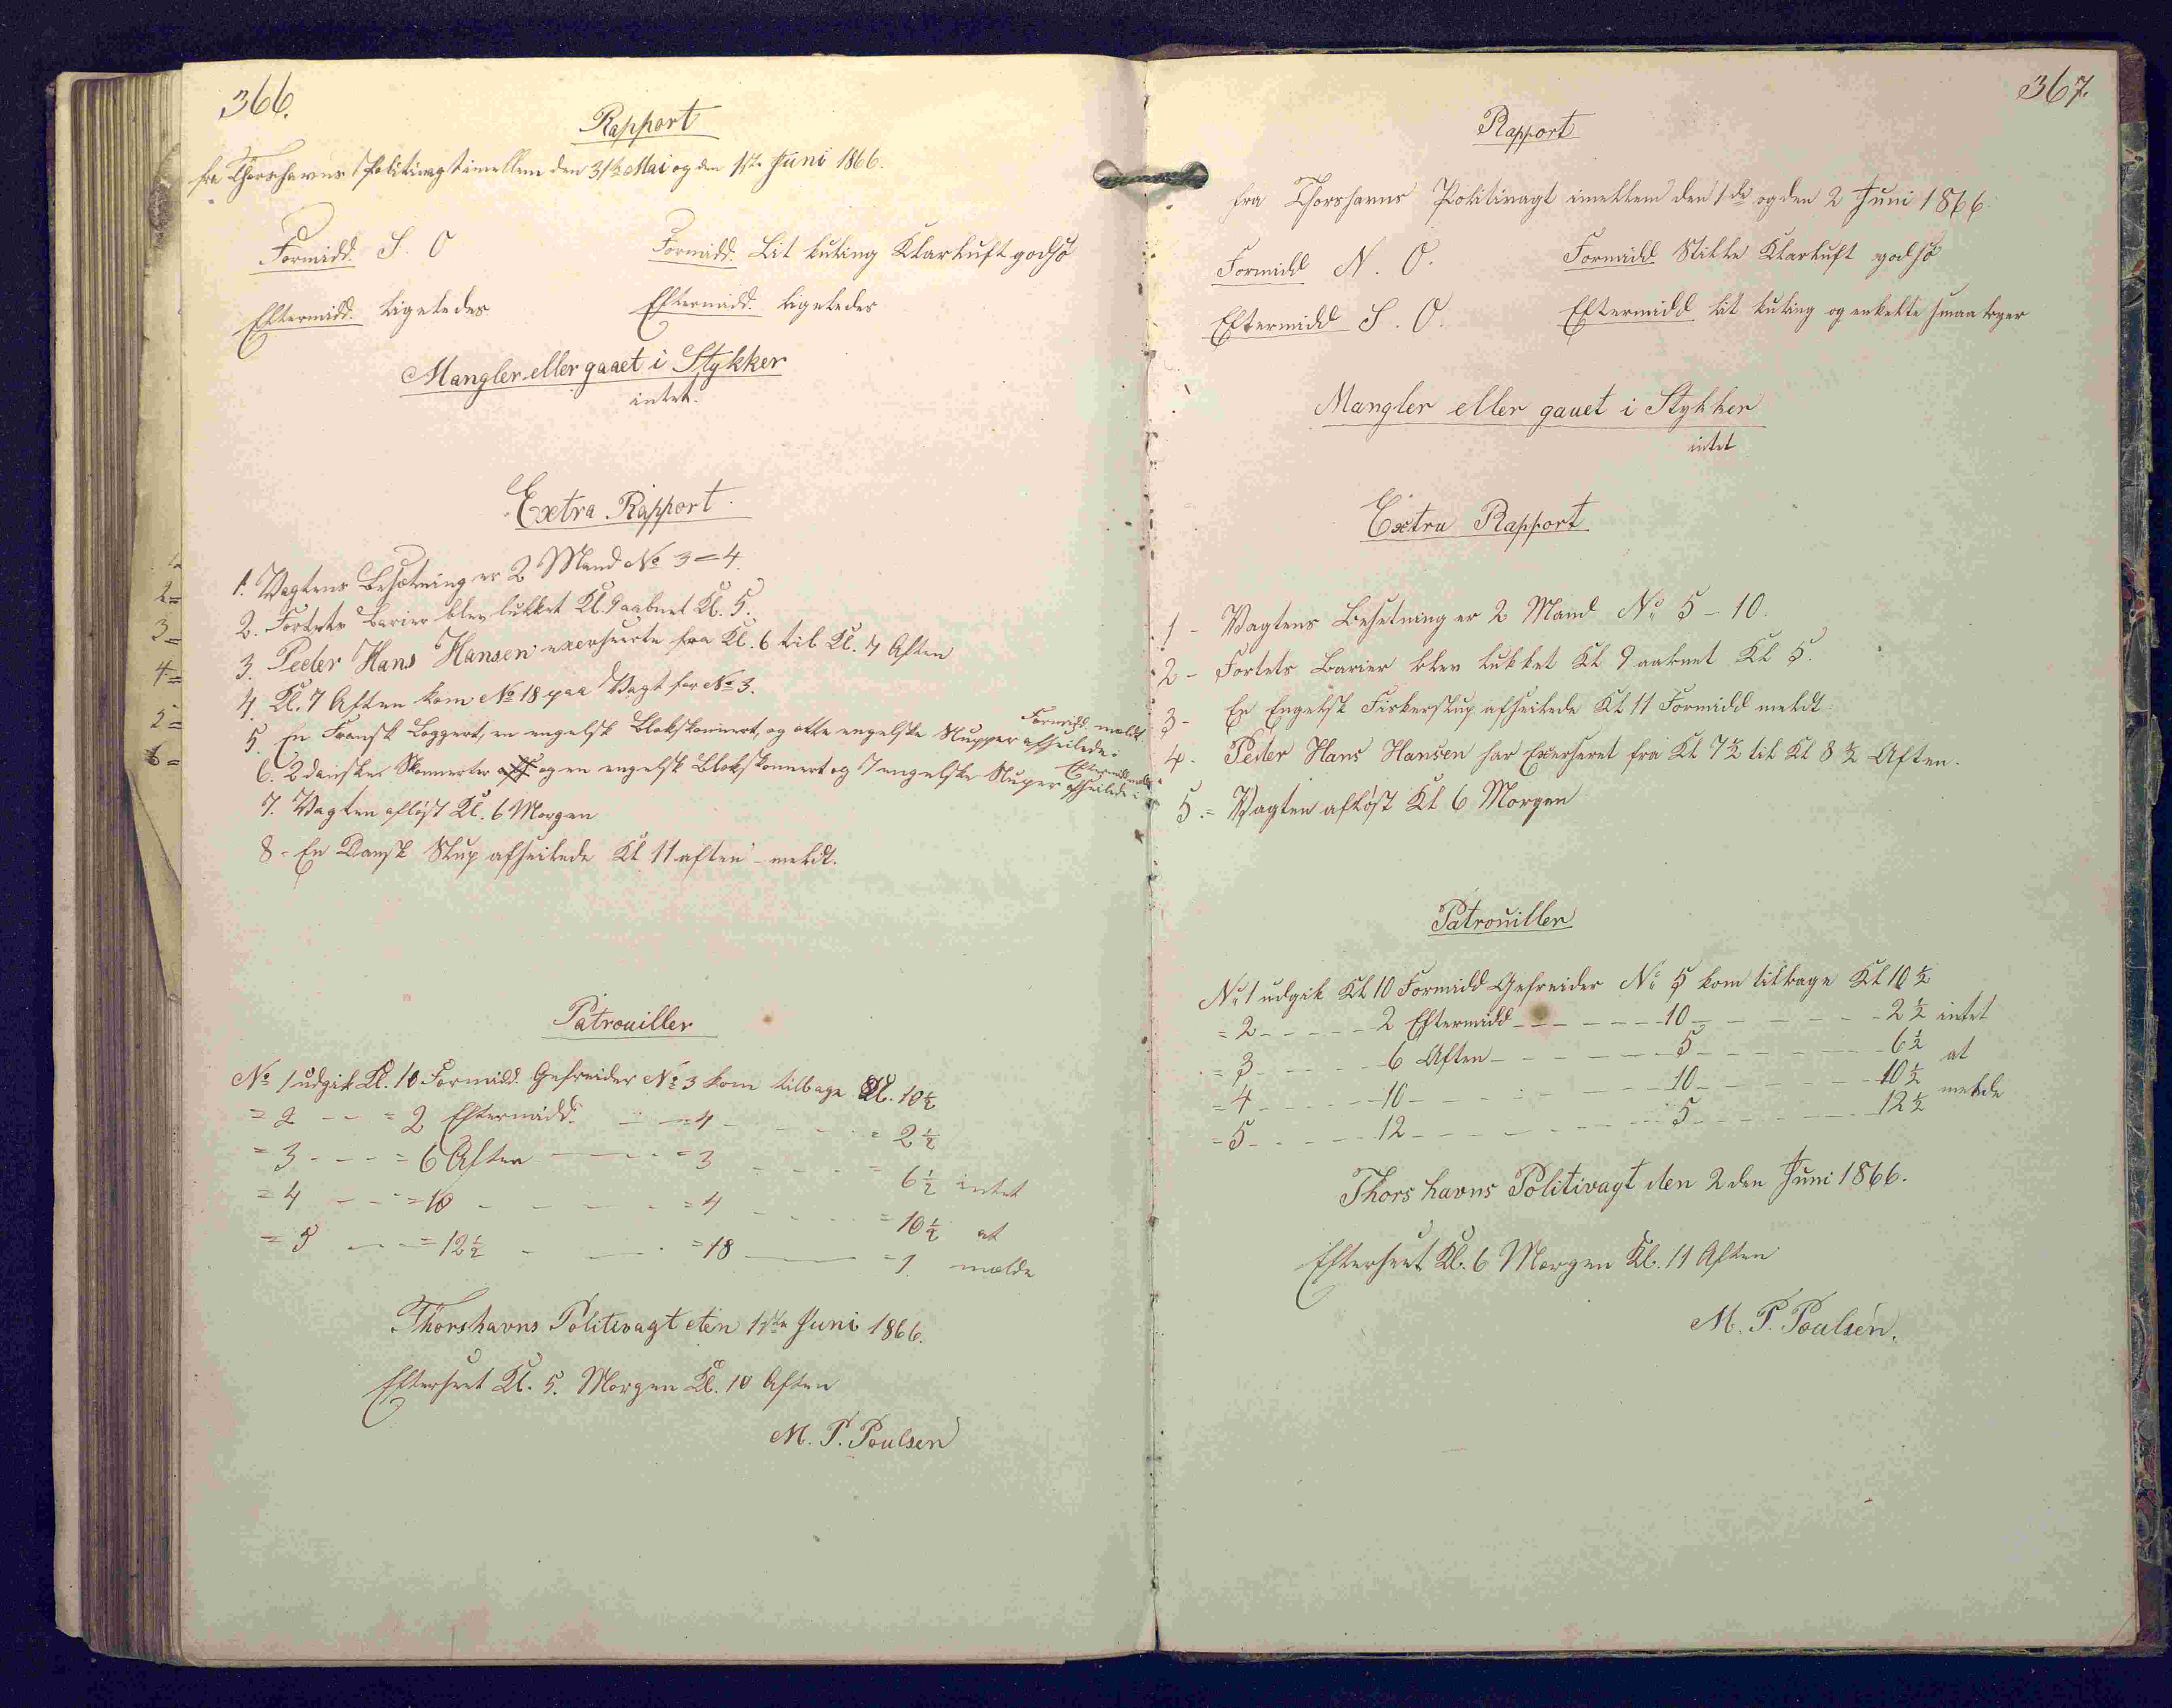 366.
Rapport
fra Thorshavns Politivagt imellem den 31te Mai og den 1ste Juni 1866.
Formidd. S. O
Formidd. Lit kuling Klarluft god Sø
Eftermidd. ligeledes
Eftermidd. ligeledes
Mangler eller gaaet i Stykker
intet.
Extra Rapport.
1. Vagtens Besætning er 2 Mand No 3 = 4.
2. Fortets Barier blev lukket Kl. 9 aabnet Kl. 5.
3. Peder Hans Hansen exerseerte fra Kl. 6 til Kl. 7 Aften
4. Kl. 7 Aften kom No 18 paa Vagt for No 3.
5. En Fransk Loggert, en engelsk Blokskonnert, og otte engelske Slupper afseilede: Formidd. meldt
6. 2 danske Skonnerter og en engelsk Blokskonnert og 7 engelske Sluper afseilede: Eftermidd meldt
7. Vagten afløst Kl. 6 Morgen
8 - En Dansk Slup afseilede Kl 11 aften - meldt.
Patrouiller
No 1 udgik Kl. 10 Formidd. Gefreider No 3 kom tilbage Kl. 10½
= 2 - - = 2 Eftermidd. - - = 4 - - - = 2½
= 3 - - - = 6 Aften - - - = 3 - - - = 6½ intet
= 4 - - - = 10 - - - - = 4 - - - = 10½ at
= 5 - - - = 12½ - - - = 18 - - - = 1. melde
Thorshavns Politivagt den 1ste Juni 1866.
Efterseet Kl. 5. Morgen Kl. 10 Aften
M. P. Poulsen
367.
Rapport
fra Thorshavns Politivagt imellem den 1de og den 2 Juni 1866
Formidd N. O.
Formidd Stille Klarluft god Sø
Eftermidd S. O.
Eftermidd lit kuling og enkelte smaa byer
Mangler eller gaaet i Stykker
intet
Extra Rapport
1 - Vagtens Besetning er 2 Mand No 5 - 10.
2 - Fortets Barier blev lukket Kl 9 aabnet Kl 5.
3 - En Engelsk Fiskerslup afseilede Kl 11 Formidd meldt.
4 - Peder Hans Hansen har Exerseret fra Kl 7½ til Kl 8½ Aften.
5 = Vagten afløst Kl 6 Morgen
Patrouiller
No 1 udgik Kl 10 Formidd Gefreider No 5 kom tilbage Kl 10½
= 2 - - - - - 2 Eftermidd - - - - - 10 - - - - - 2½ intet
= 3 - - - - - 6 Aften - - - - - 5 - - - - - 6½ at
= 4 - - - - - 10 - - - - - 10 - - - - - 10½ melde
= 5 - - - - - 12 - - - - - 5 - - - - - 12½
Thorshavns Politivagt den 2den Juni 1866.
Efterseet Kl. 6 Morgen Kl. 11 Aften
M. P. Poulsen.
2=
3=
4=
5=
6=